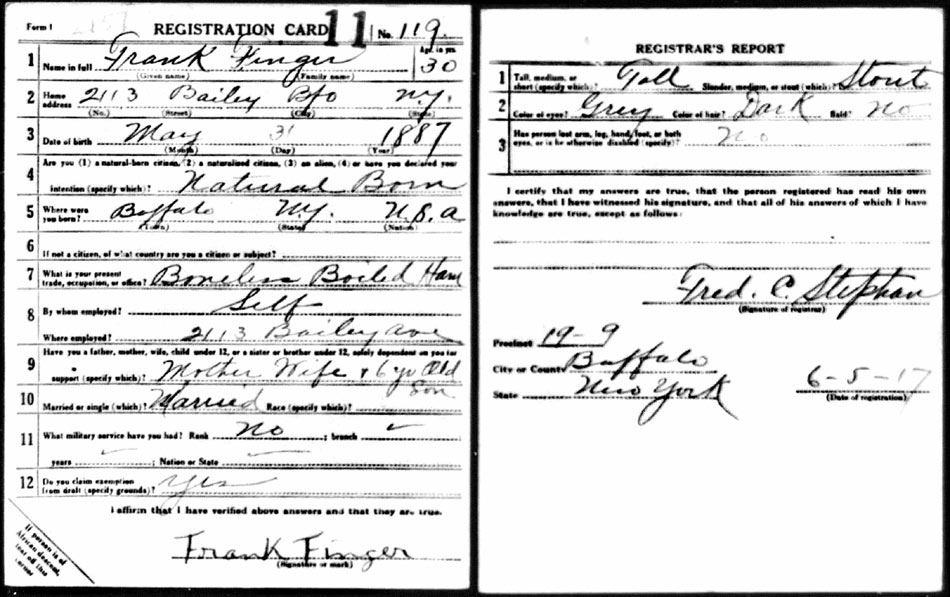 Form 1 REGISTRATION CARD 11 No. 119.
1 Name in full Frank Finger Age, in yrs. 30
(Given name) (Family name)
2 Home address 2113 Bailey Bfo N.Y.
(No.) (Street) (City) (State)
3 Date of birth May 31 1887
(Month) (Day) (Year)
Are you (1) a natural-born citizen, (2) a naturalized citizen, (3) an alien, (4) or have you declared your
4 intention (specify which)? Natural Born
5 Where were you born? Buffalo N.Y. U.S.a
(Town) (State) (Nation)
6 If not a citizen, of what country are you a citizen or subject?
7 What is your present trade, occupation, or office? Boneless Boiled Ham
8 By whom employed? Self
Where employed? 2113 Bailey ave
9 Have you a father, mother, wife, child under 12, or a sister or brother under 12, solely dependent on you for
support (specify which)? Mother Wife & 6 yr Old Son
10 Married or single (which)? Married Race (specify which)?
11 What military service have you had? Rank No ; branch
years ; Nation or State
12 Do you claim exemption from draft (specify grounds)? Yes
I affirm that I have verified above answers and that they are true.
Frank Finger
(Signature or mark)
If person is of
African descent,
tear off this
corner
REGISTRAR'S REPORT
1 Tall, medium, or short (specify which)? Tall Slender, medium, or stout (which)? Stout
2 Color of eyes? Grey Color of hair? Dark Bald? No
3 Has person lost arm, leg, hand, foot, or both
eyes, or is he otherwise disabled (specify)? No
I certify that my answers are true, that the person registered has read his own
answers, that I have witnessed his signature, and that all of his answers of which I have
knowledge are true, except as follows:
Fred. C. Stephan
(Signature of registrar)
Precinct 19-9
City or County Buffalo
State New York 6-5-17
(Date of registration)